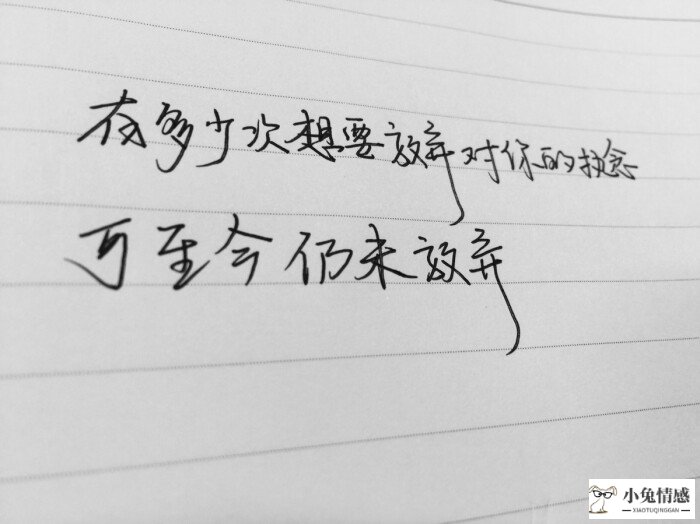 有多少次想要放弃对你的执念
可至今仍未放弃
小兔情感
XIAOTUQINGGAN